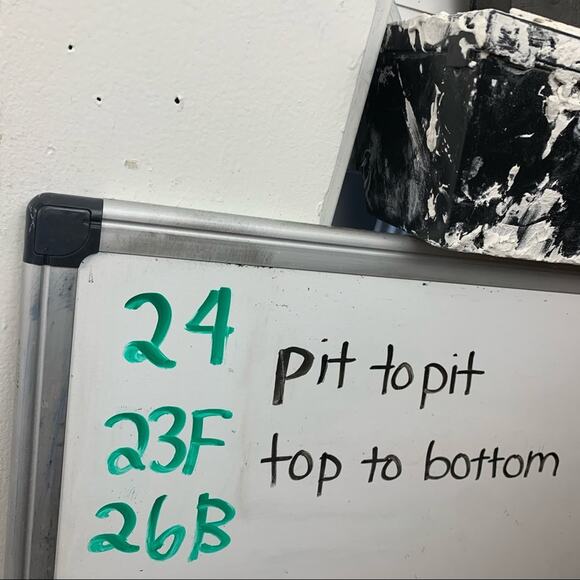 24 pit to pit
23F top to bottom
26B